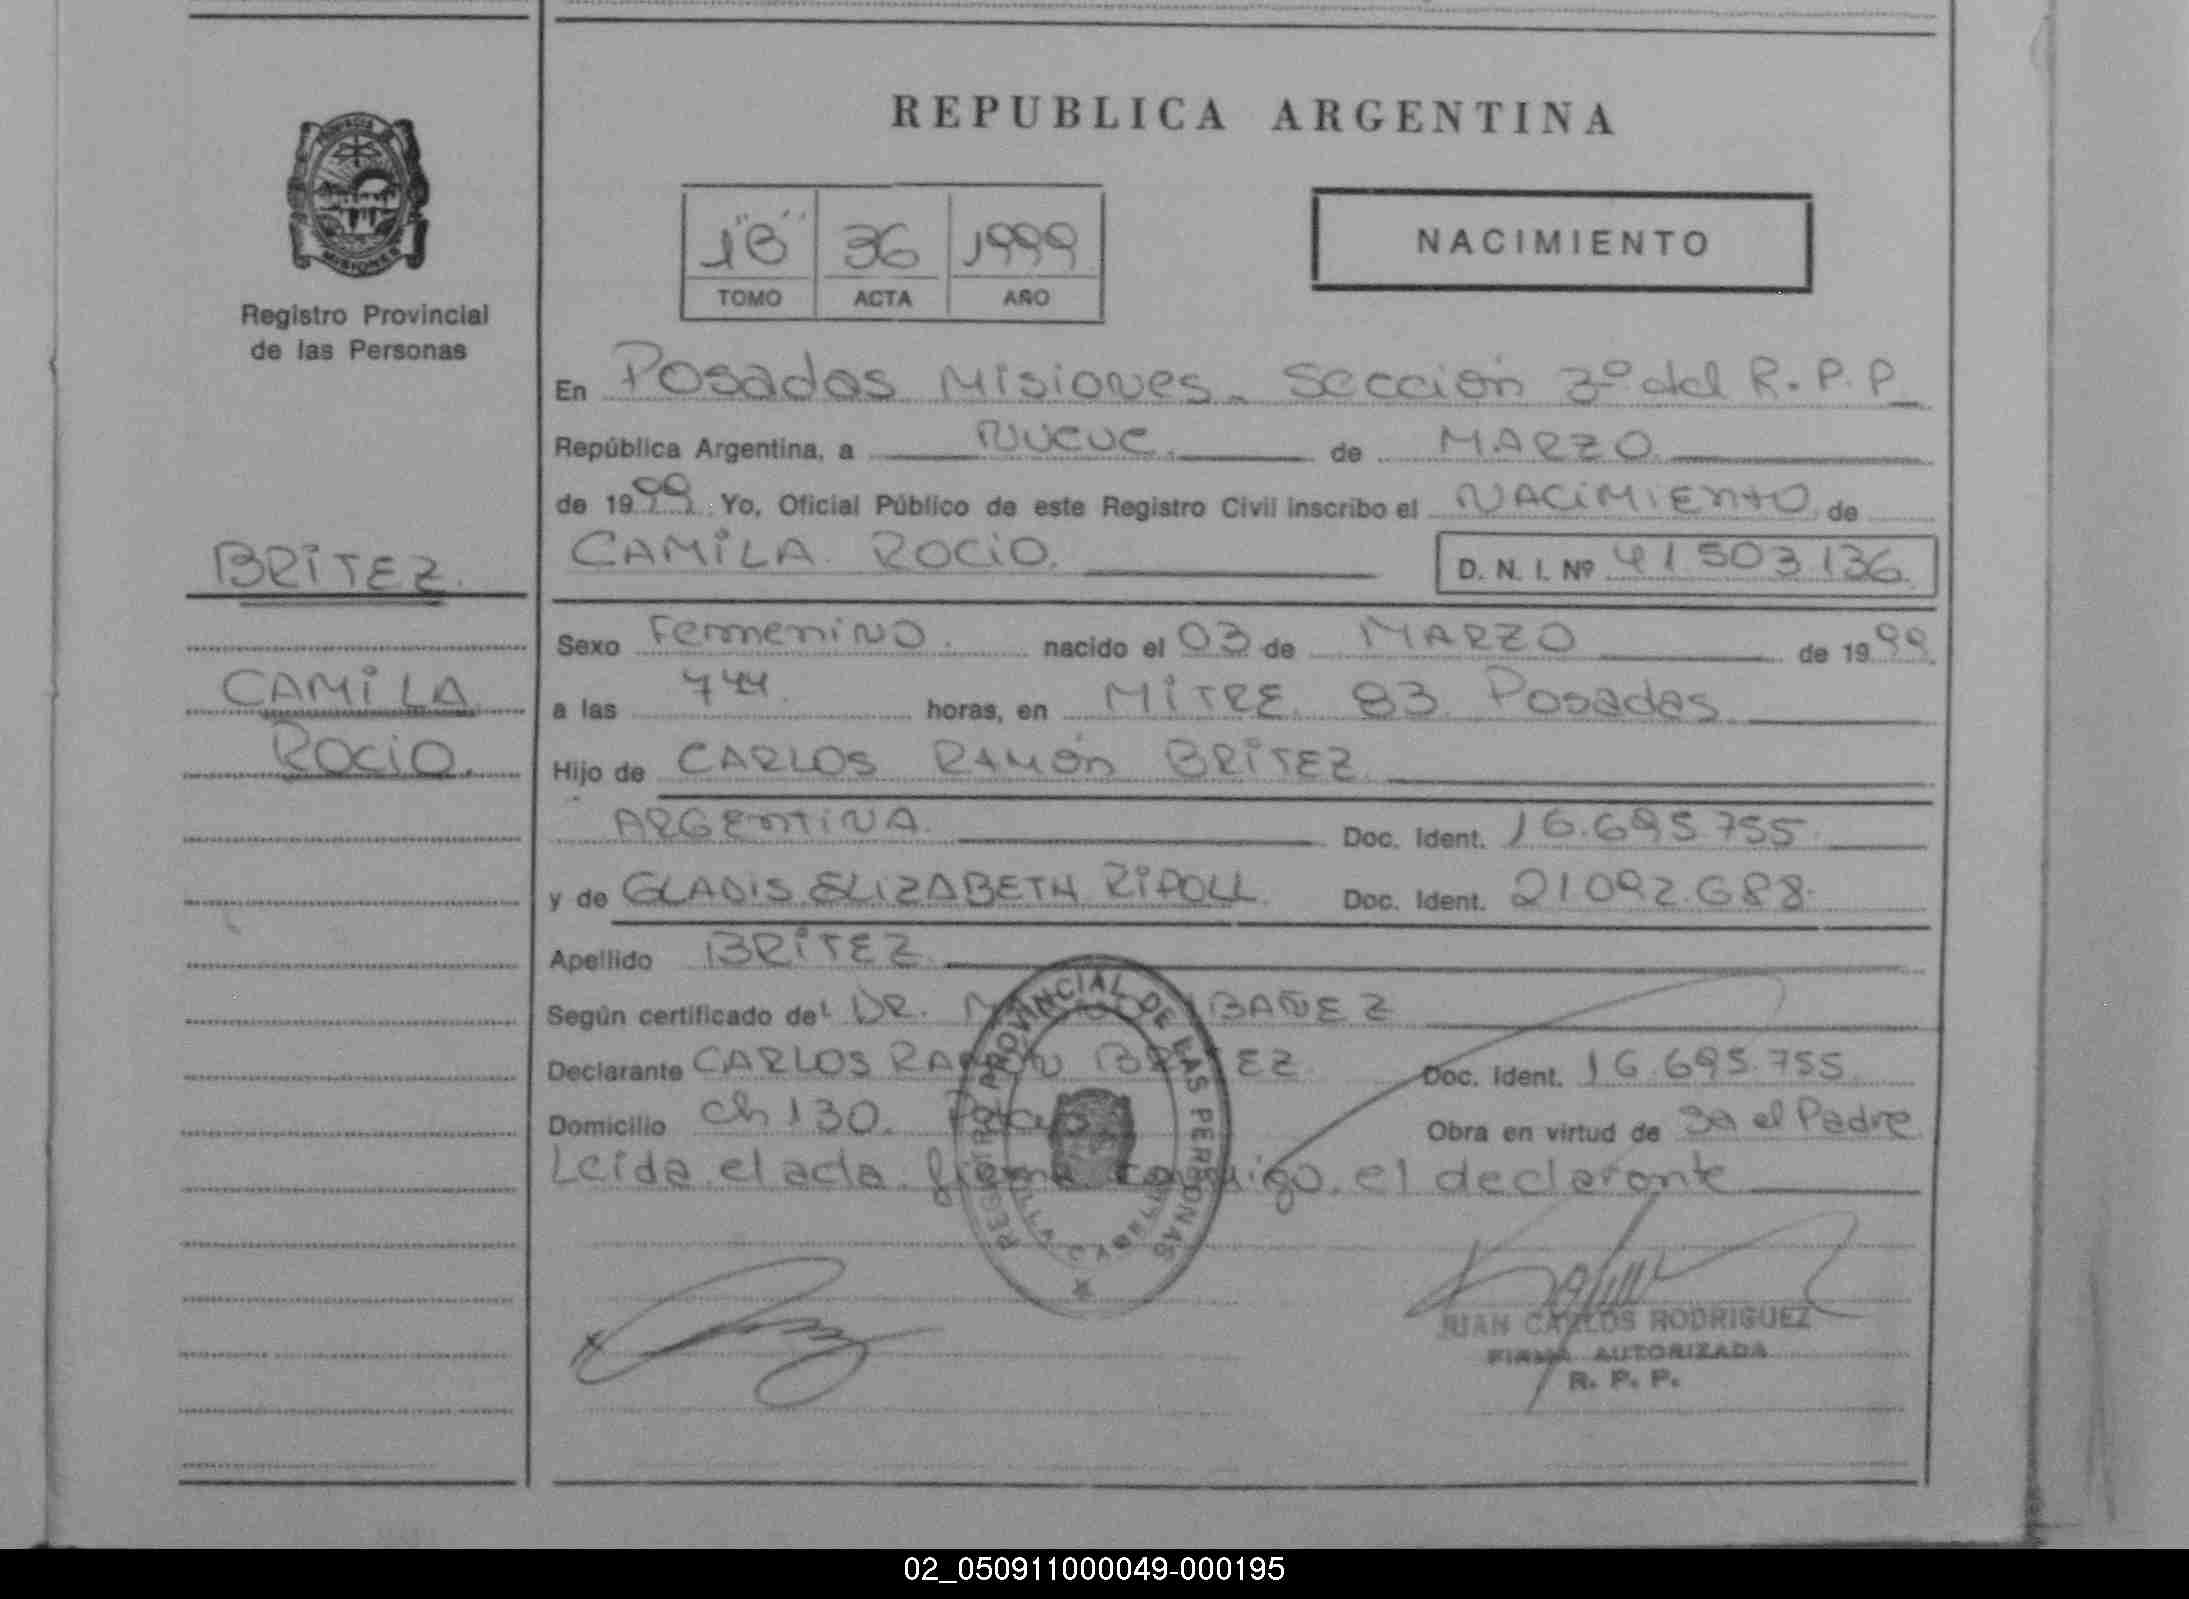 REPUBLICA ARGENTINA
PROVINCIA DE
MISIONES
Registro Provincial
de las Personas
1"B" 36 1999
TOMO ACTA AÑO
NACIMIENTO
En Posadas Misiones. Sección 3º del R.P.P
República Argentina, a Nueve. de MARZO.
de 1999. Yo, Oficial Público de este Registro Civil inscribo el NACIMIENTO de
CAMILA ROCIO. D. N. I. Nº 41503136.
BRITEZ.
CAMILA
ROCIO.
Sexo Femenino. nacido el 03 de MARZO de 1999.
a las 744. horas, en MITRE. 83. Posadas
Hijo de CARLOS RAMÓN BRITEZ.
ARGENTINA. Doc. Ident. 16.695.755.
y de GLADIS ELIZABETH RIPOLL. Doc. Ident. 21092.688.
Apellido BRITEZ.
Según certificado del DR. IBAÑEZ
Declarante CARLOS RAMON BRITEZ. Doc. Ident. 16.695.755.
Domicilio ch 130. Obra en virtud de el Padre
Leída el acta firma conmigo el declarante
REGISTRO PROVINCIAL DE LAS PERSONAS
JUAN CARLOS RODRIGUEZ
FIRMA AUTORIZADA
R. P. P.
02_050911000049-000195